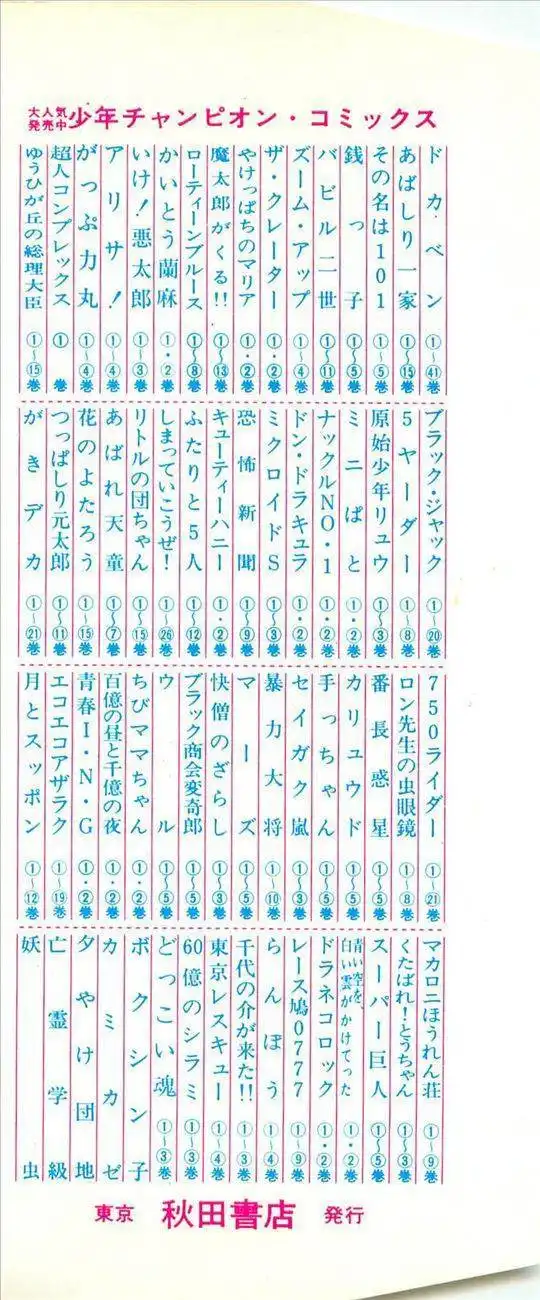 大人気発売中 少年チャンピオン・コミックス
ドカベン ①〜㊶巻
あばしり一家 ①〜⑮巻
その名は101 ①〜⑤巻
銭っ子 ①〜⑤巻
バビル二世 ①〜⑪巻
ズーム・アップ ①〜④巻
ザ・クレーター ①・②巻
やけっぱちのマリア ①・②巻
魔太郎がくる!! ①〜⑬巻
ローティーンブルース ①〜⑧巻
かいとう蘭麻 ①・②巻
いけ!悪太郎 ①〜③巻
アリサ! ①〜④巻
がっぷ力丸 ①〜④巻
超人コンプレックス ①巻
ゆうひが丘の総理大臣 ①〜⑮巻
ブラック・ジャック ①〜⑳巻
5ヤーダー ①〜⑧巻
原始少年リュウ ①〜③巻
ミニぱと ①・②巻
ナックルNO・1 ①・②巻
ドン・ドラキュラ ①・②巻
ミクロイドS ①〜③巻
恐怖新聞 ①〜⑨巻
キューティーハニー ①・②巻
ふたりと5人 ①〜⑫巻
しまっていこうぜ! ①〜㉖巻
リトルの団ちゃん ①〜⑮巻
あばれ天童 ①〜⑦巻
花のよたろう ①〜⑮巻
つっぱしり元太郎 ①〜⑪巻
がきデカ ①〜㉑巻
750ライダー ①〜㉑巻
ロン先生の虫眼鏡 ①〜⑧巻
番長惑星 ①〜⑤巻
カリュウド ①〜⑤巻
手っちゃん ①〜⑤巻
セイガク嵐 ①〜⑤巻
暴力大将 ①〜⑩巻
マーズ ①〜⑤巻
快僧のざらし ①〜③巻
ブラック商会変奇郎 ①〜⑤巻
ウル ①〜⑤巻
ちびママちゃん ①・②巻
百億の昼と千億の夜 ①・②巻
青春I・N・G ①・②巻
エコエコアザラク ①〜⑲巻
月とスッポン ①〜⑫巻
マカロニほうれん荘 ①〜⑨巻
くたばれ!とうちゃん ①〜③巻
スーパー巨人 ①〜⑤巻
青い空を、白い雲がかけてった ①・②巻
ドラネコロック ①・②巻
レース鳩0777 ①〜⑨巻
らんぽう ①〜④巻
千代の介が来た!! ①〜③巻
東京レスキュー ①〜④巻
60億のシラミ ①〜③巻
どっこい魂 ①〜③巻
ボクシン子
カミカゼ
夕やけ団地
亡霊学級
妖虫
東京 秋田書店 発行